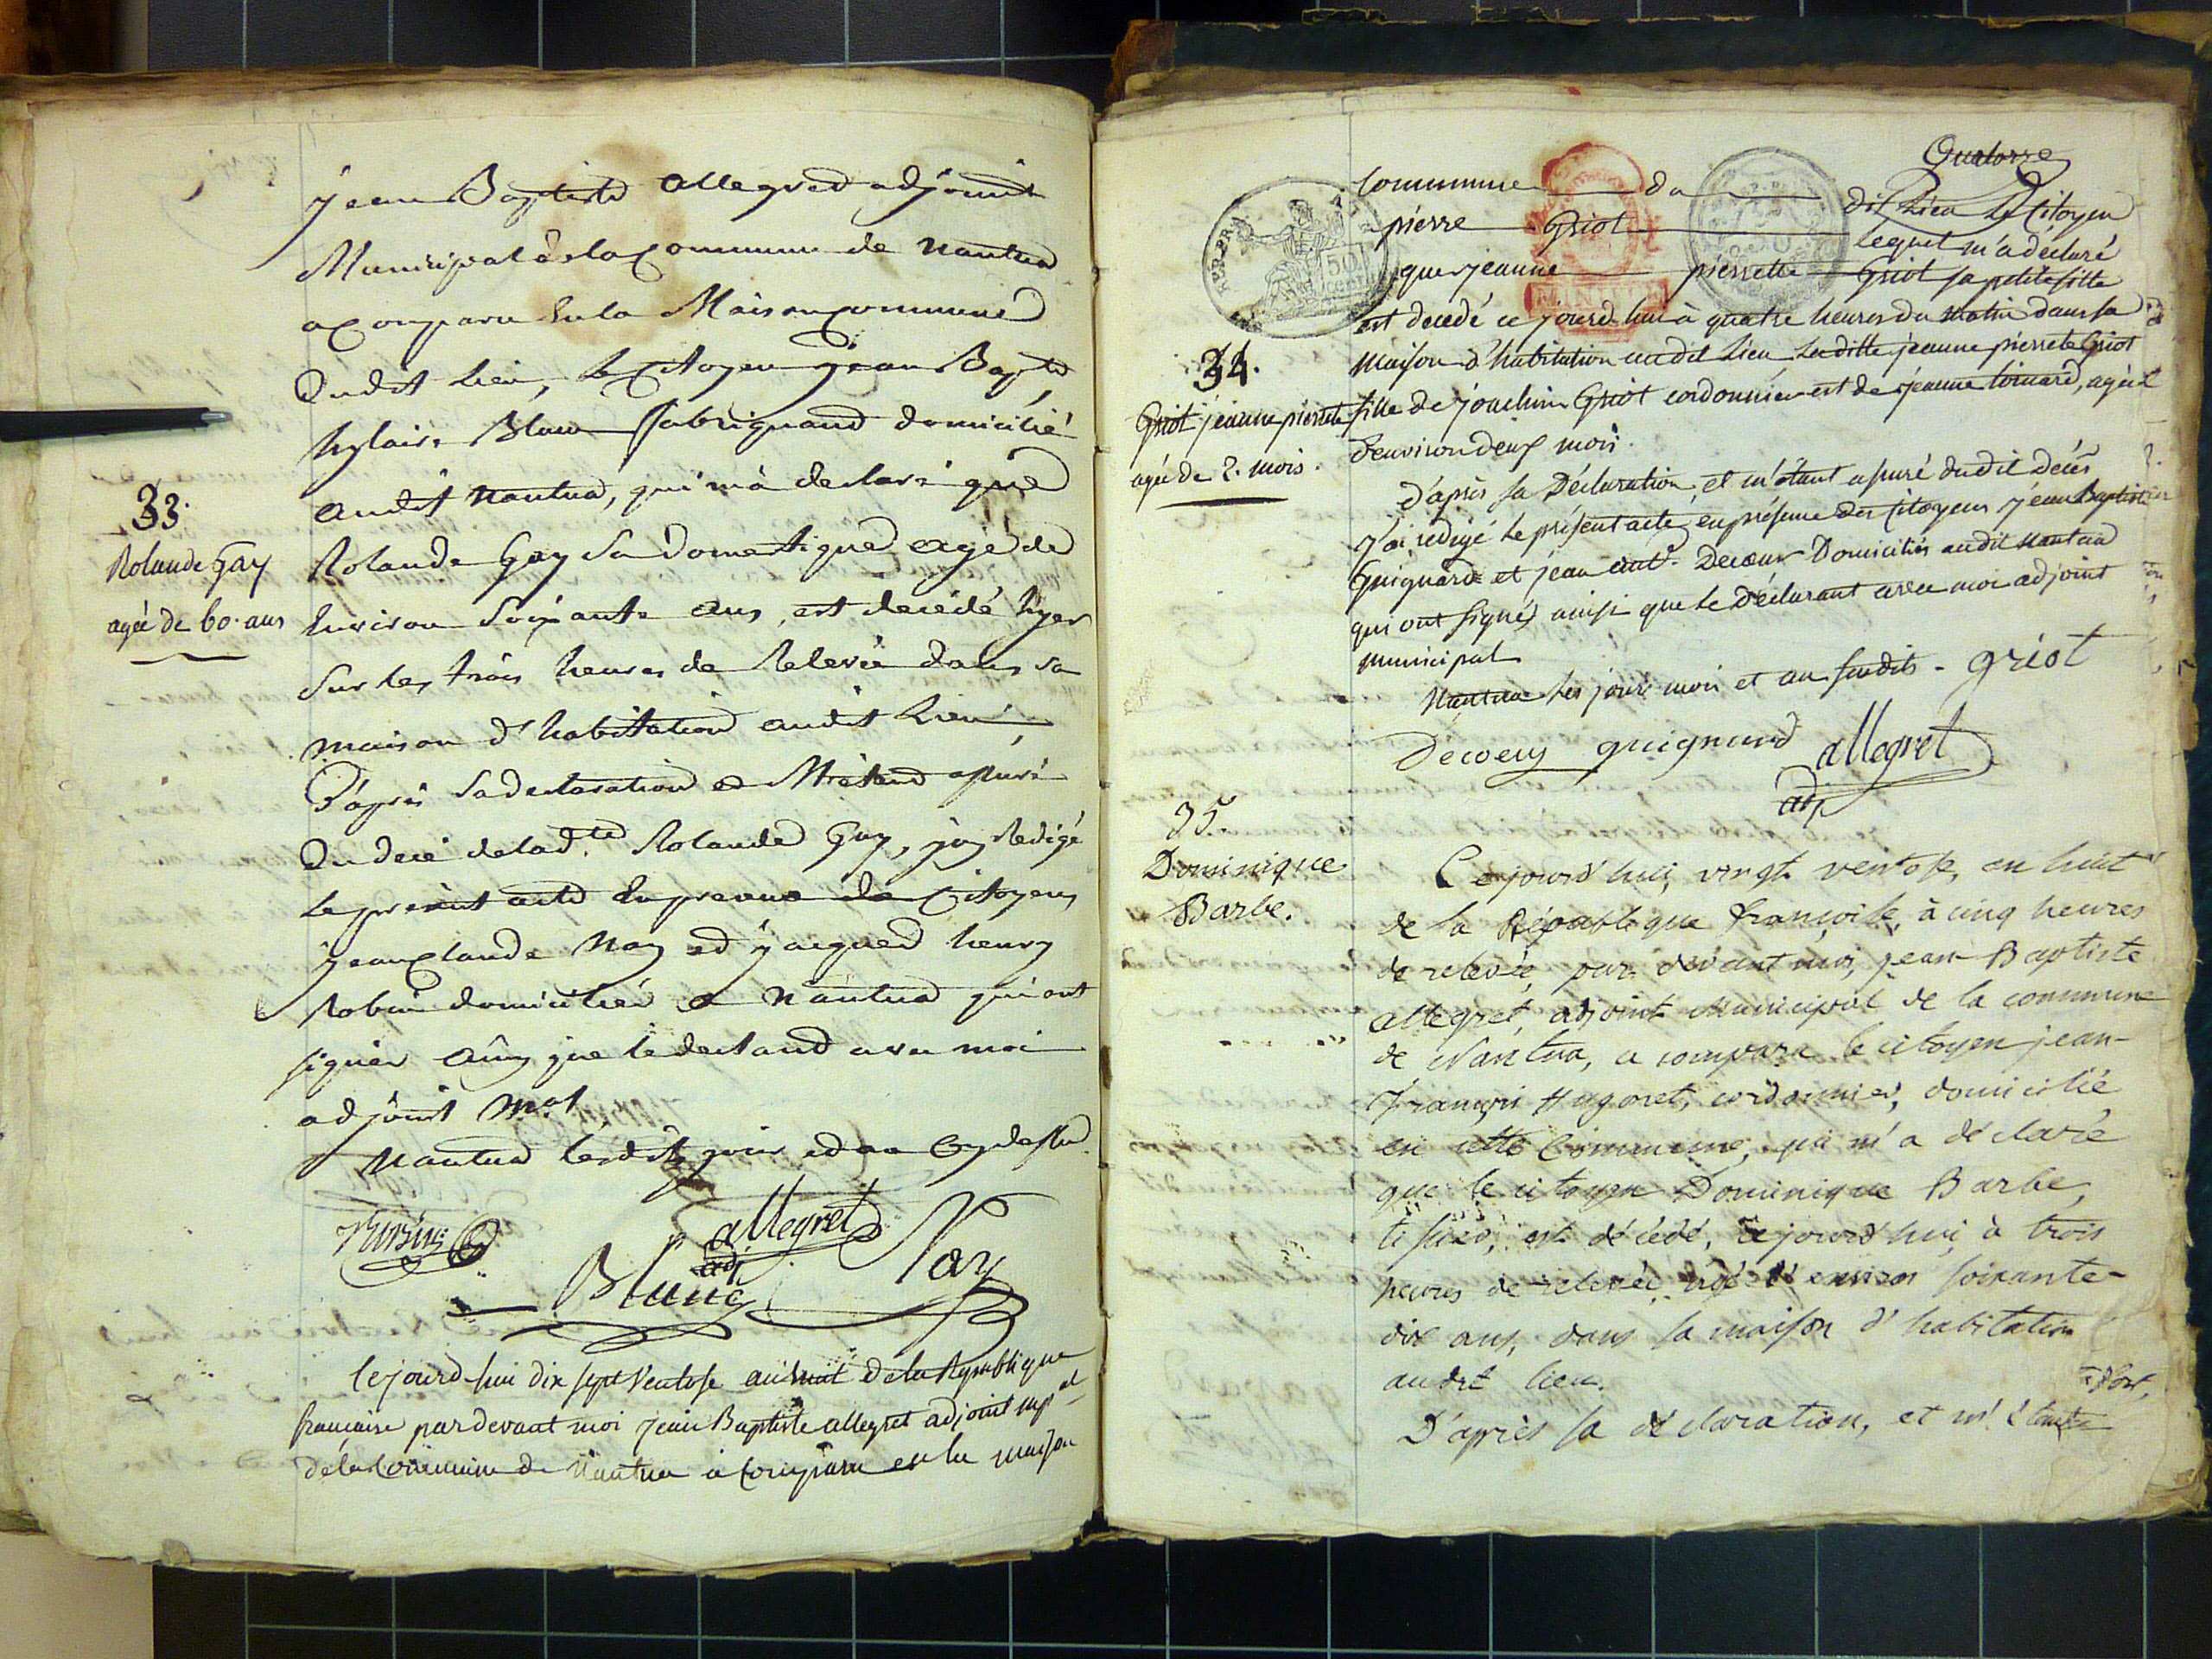 jean Baptiste allegret adjoint
Municipal de la Commune de Nantua
a Comparu en la Maison Commune
Dudit lieu, le Citoyen jean Bapte
hylaire Blanc fabriquand domicilié
audit Nantua, qui m'à declaré que
33.
Rolande Gay
agée de 60. ans
Rolande Gay sa Domestique agé de
Environ Soixante ans, est decédé hyer
sur les trois heures de Relevée dans sa
maison d'habitation audit lieu,
D'après sa declaration et M'étand assuré
Du decé de lad.te Rolande Gay, j'ay Redigé
le présent acte En presence de Citoyens
jean Claude Nay et jacques henry
Robin domiciliés a Nantua qui ont
signés ainsy que le declarand avec moi
adjoint Mal
Nantua lesdits jour et an Cydessus
Robin
allegret
adj
Blanc
Nay
Cejourd'hui dix sept Ventose an huit de la Republique
française pardevant moi jean Baptiste allegret adjoint mpal
de la Commune de Nantua a Comparu en la maison
Quatorze
Commune du dit Lieu le Citoyen
pierre Griot lequel m'a déclaré
que jeanne pierrette Griot sa petite fille
est decedé ce jourd'hui à quatre heures du matin dans sa
maison d'habitation audit Lieu, Laditte jeanne pierrete Griot
34.
Griot jeanne pierrete
agée de 2. mois.
fille de joachim Griot cordonnier et de jeanne , agée
d'environ deux mois.
d'après sa Déclaration, et m'étant assuré dudit decés
j'ai redigé le présent acte, en présence des Citoyens jean Baptiste
Guignard et jean ant. Decoeur Domiciliés audit Nantua
qui ont signés ainsi que le Déclarant avec moi adjoint
municipal
Nantua les jour mois et an susdits - griot
Decoeur guignard allegret
adj
35.
Dominique
Barbe.
Cejourd'hui, vingt ventose, an huit
de la République françoise, à cinq heures
de relevée, par devant moi, jean Baptiste
allegret, adjoint Municipal de la commune
de Nantua, a comparu le citoyen jean-
françois Hugonet, cordonnier, domicilié
en cette Commune, qui m'a déclaré
que le citoyen Dominique Barbe,
tisseur, est décédé, cejourd'hui, à trois
heures de relevée, agé d'environ soixante-
dix ans, dans sa maison d'habitation
audit lieu.
D'après sa déclaration, et m'étant